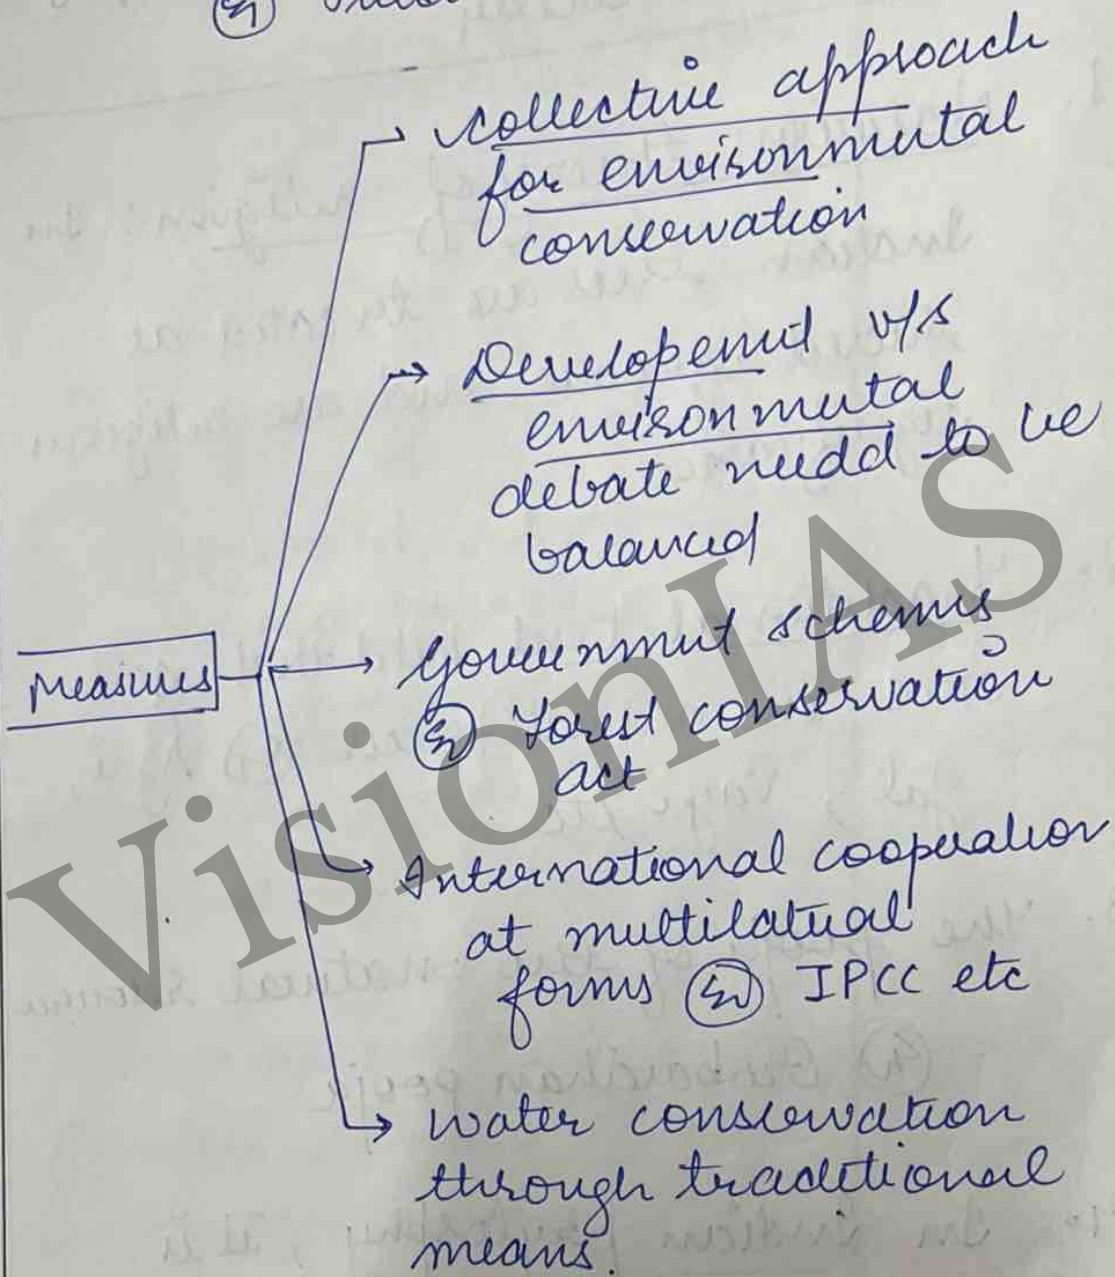 collective approach
for environmental
conservation
Developement v/s
environmental
debate needd to be
balanced
Measures
Government schemes
Ex Forest conservation
act
International cooperation
at multilateral
forms Ex IPCC etc
water conservation
through traditional
means.
VisionIAS